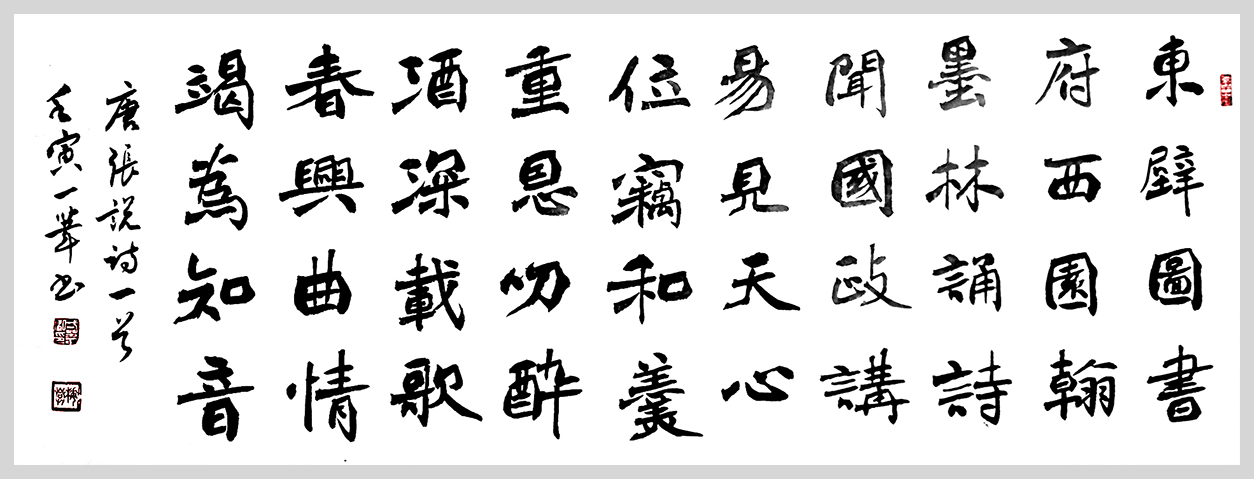 東壁圖書
府西園翰
墨林誦詩
聞國政講
易見天心
位竊和羹
重恩叨醉
酒深載歌
春興曲情
竭為知音
唐張說詩一首
壬寅一葦书